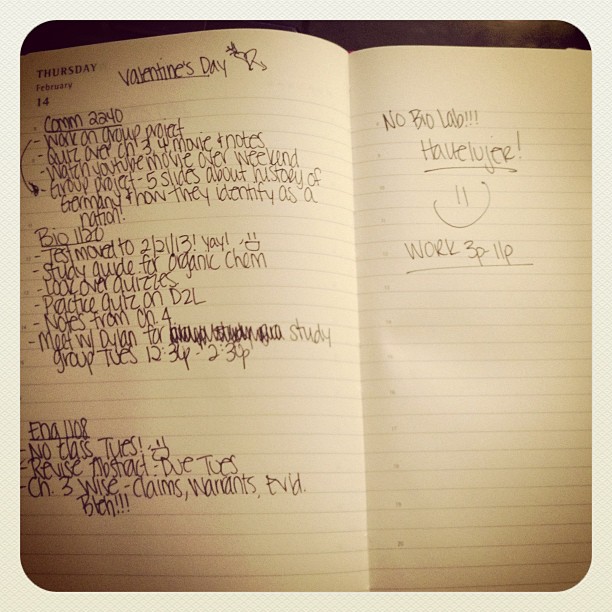 THURSDAY
February
14
Valentine's Day
Comm 2240
- Work on group project
- Quiz over ch. 3, 4 movie & notes
- Watch youtube movie over weekend
- Group project - 5 slides about history of
Germany & how they identify as a
nation!
Bio 1120
- Test moved to 2/21/13! Yay!
- Study guide for organic chem
- Look over quizzes
- Practice quiz on D2L
- Notes from Ch. 4
- Meet w/ Dylan for study
group Tues 12:30p - 2:30p
Eng 1108
- No class Tues!
- Revise Abstract - Due Tues
- Ch. 3 Wise - Claims, Warrants, Evid.
Bleh!!!
No Bio Lab!!!
Hallelujer!
WORK 3p-11p